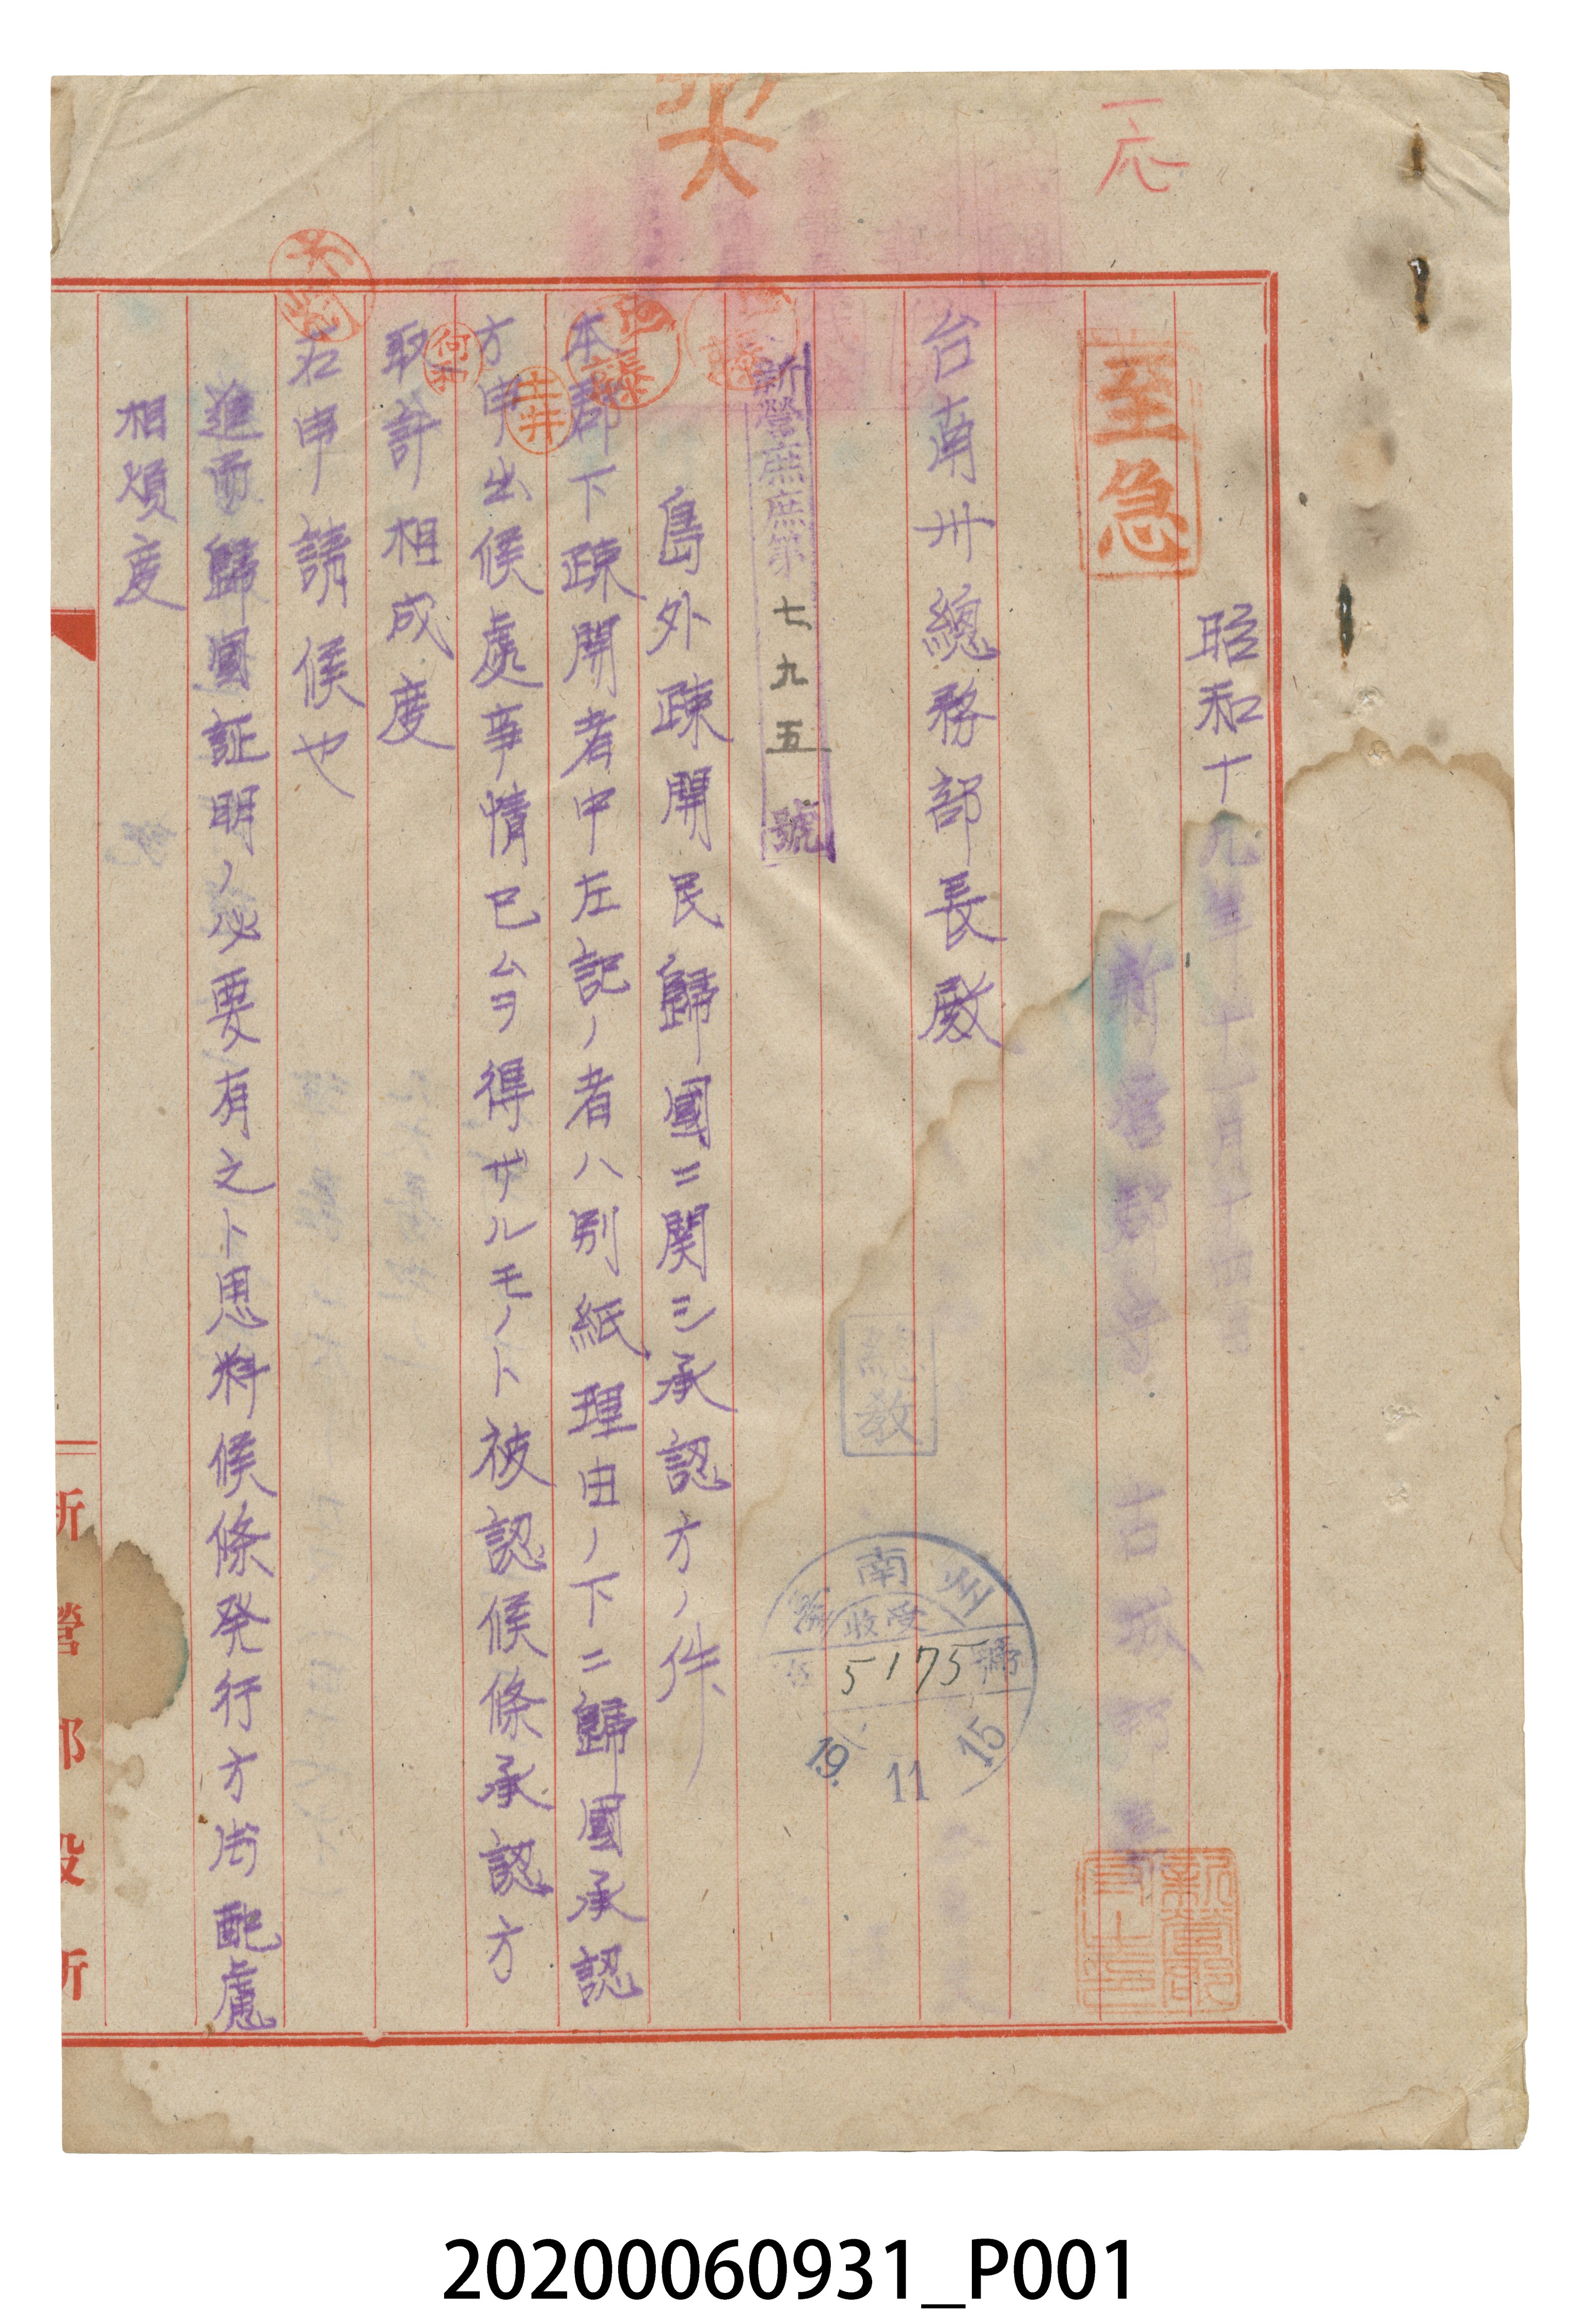 一応
至急
昭和十九年十一月十四日
新營郡守 古城
台南州總務部長殿
總教
南州
受收
5175號
19. 11 15
新營庶庶第七九五號
島外疎開民歸國ニ関シ承認方ノ件
本郡下疎開者中左記ノ者ハ別紙理由ノ下ニ歸國承認
方申出候處事情已ムヲ得ザルモノト被認候條承認方
取計相成度
右申請候也
進而歸國証明ノ必要有之ト思料候條発行方御配慮
相煩度
土井
新營郡役所
20200060931_P001